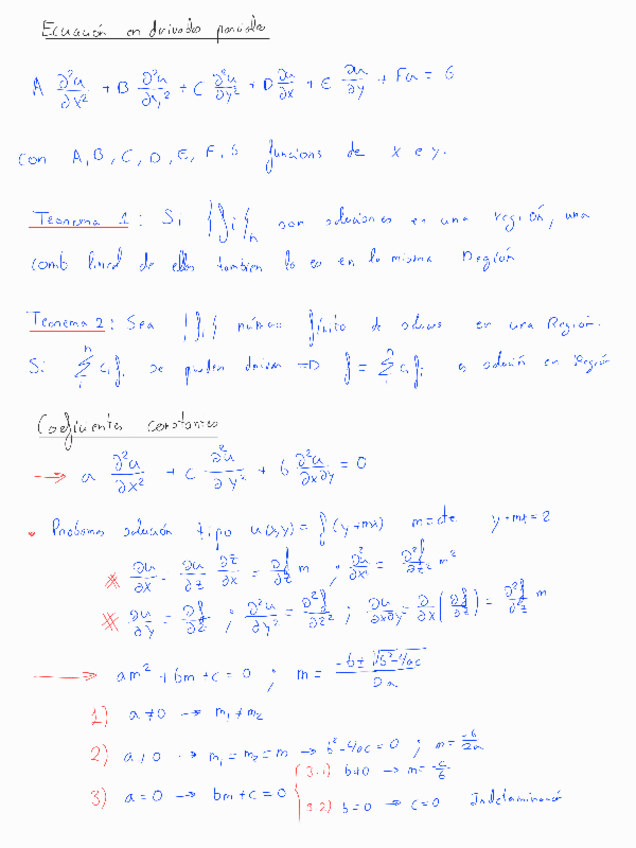 Ecuación en derivadas parciales
A ∂²u/∂x² + B ∂²u/∂y² + C ∂²u/∂y² + D ∂u/∂x + E ∂u/∂y + Fu = G
con A, B, C, D, E, F, G funcions de x e y.
Teorema 1: Si {fi}n son soluciones en una región, una
comb lineal de ellas tambien lo es en la misma Región
Teorema 2: Sea {fi} número finito de soluc en una Región.
Si Σ ci fi se pueden derivar => f = Σ ci fi es solución en Región
Coeficientes constantes
→ a ∂²u/∂x² + c ∂²u/∂y² + b ∂²u/∂x∂y = 0
Probamos solución tipo u(x,y) = f(y+mx) m=cte y+mx=z
* ∂u/∂x = ∂u/∂z ∂z/∂x = ∂f/∂z m ; ∂²u/∂x² = ∂²f/∂z² m²
* ∂u/∂y = ∂f/∂z ; ∂²u/∂y² = ∂²f/∂z² ; ∂u/∂x∂y = ∂/∂x (∂f/∂z) = ∂²f/∂z² m
→ am² + bm + c = 0 ; m = (-b ± √(b²-4ac))/2a
1) a ≠ 0 → m₁ ≠ m₂
2) a ≠ 0 → m₁ = m₂ = m → b²-4ac = 0 ; m = -b/2a
3) a = 0 → bm + c = 0
3.1) b≠0 → m = -c/b
3.2) b=0 → c=0 Indeterminación